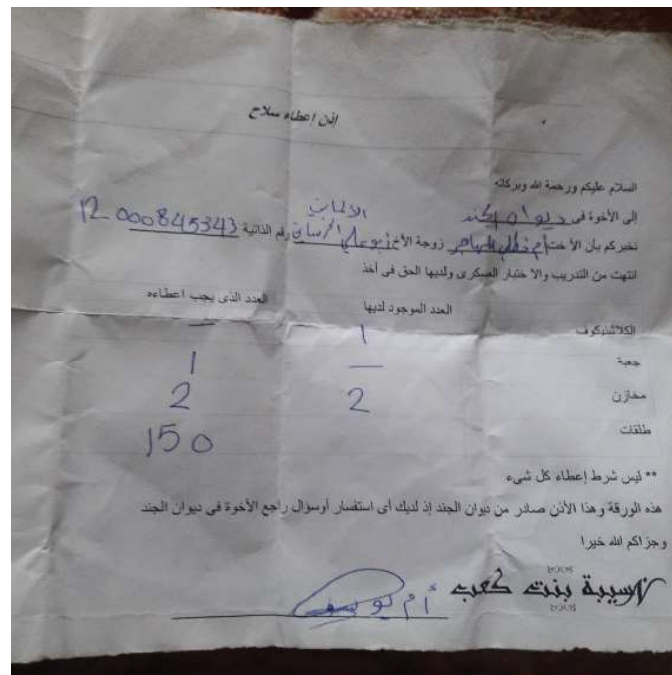 إذن إعطاء سلاح
السلام عليكم ورحمة الله وبركاته
إلى الأخوة في ديوان الجند
نخبركم بأن الأخت أم زوجة الأخ أبو علي رقم الذاتية 12000845343
انتهت من التدريب والاختبار العسكرى ولديها الحق فى أخذ
العدد الموجود لديها العدد الذى يجب اعطاءه
الكلاشنيكوف 1 –
جعبة — 1
مخازن 2 2
طلقات 150
** ليس شرط إعطاء كل شىء
هذه الورقة وهذا الأذن صادر من ديوان الجند إذ لديك أى استفسار أوسؤال راجع الأخوة فى ديوان الجند
وجزاكم الله خيرا
نسيبة بنت كعب
أم يوسف